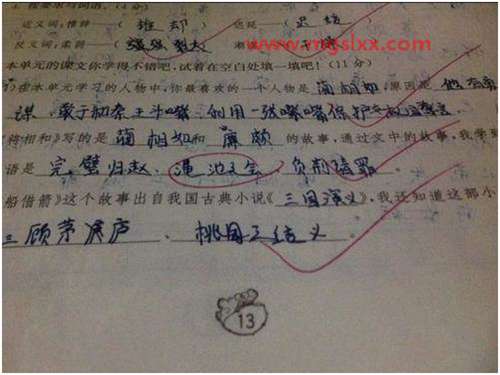 近义词：推辞——（推却） 也是——（
反义词：柔弱——（强
www.mgslxx.com
本单元的课文你学得不错吧，试着在空白处填一填吧！（11分）
在本单元学习的人物中，你最喜欢的一个人物是蔺相如，原因是他有勇
谋，敢于和秦王斗嘴，利用一张嘴
将相和》写的是蔺相如和廉颇的故事，通过文中的故事，我学
语是完璧归赵、渑池之会、负荆请罪。
船借箭》这个故事出自我国古典小说《三国演义》，我还知道这部小
三顾茅庐、桃园三结义。
13